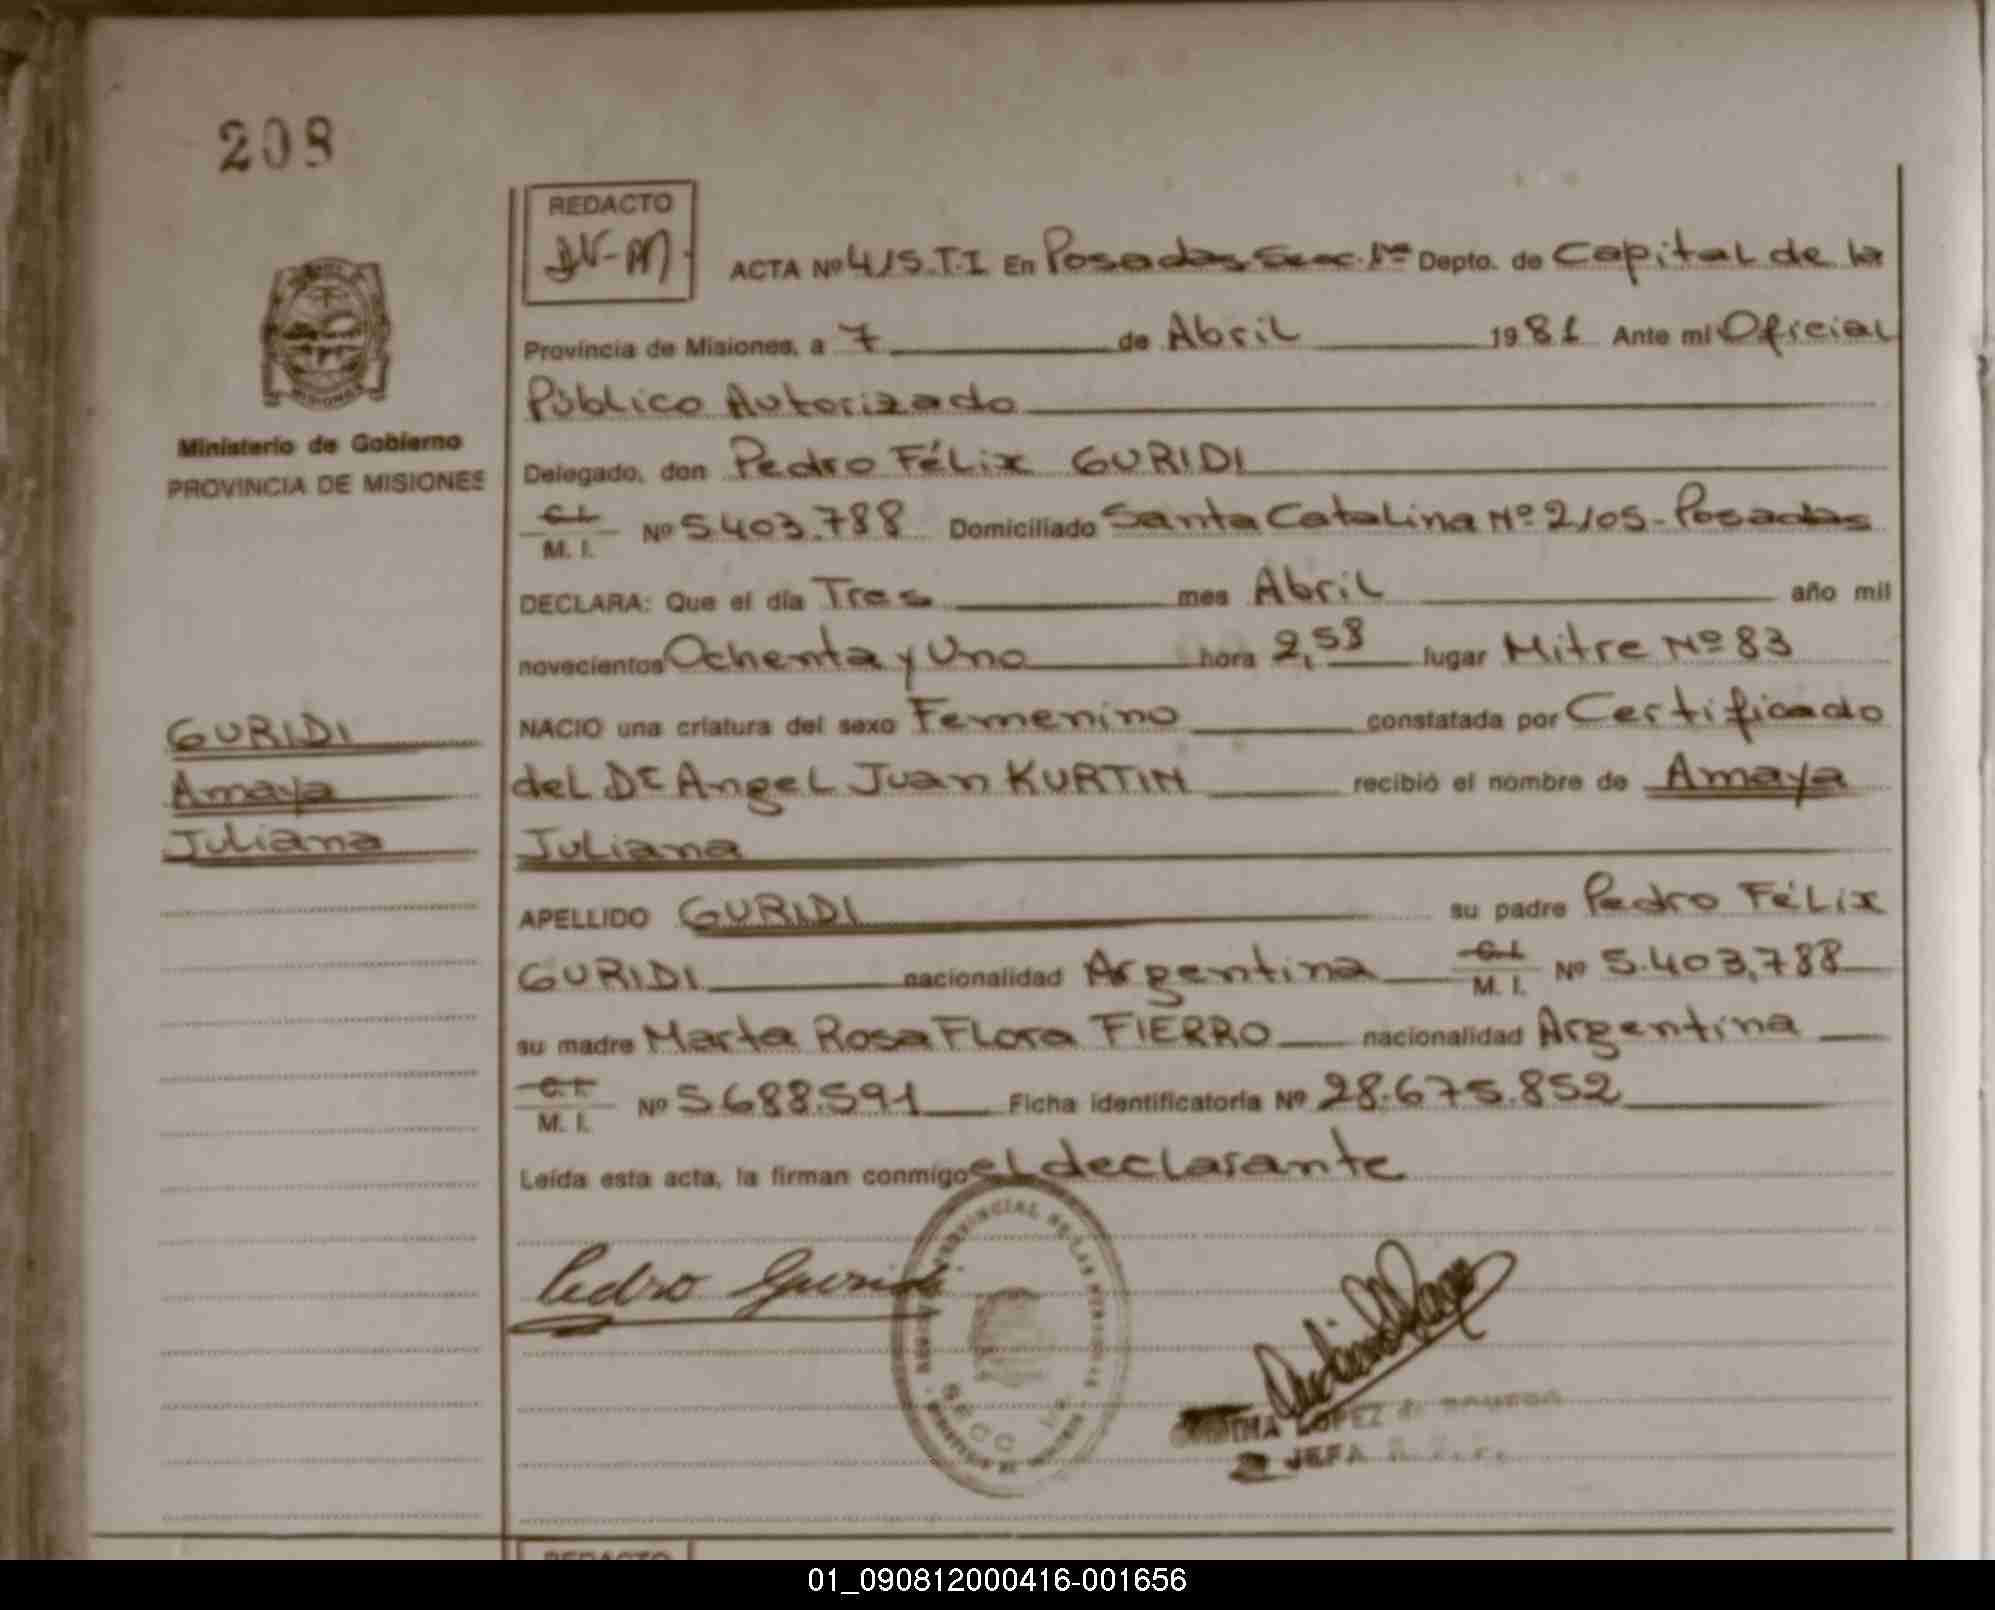 208
REDACTO
ACTA Nº 415.T.I En Posadas Secc. 1ra Depto. de Capital de la
Provincia de Misiones, a 7 de Abril 1981 Ante mi Oficial
Público Autorizado
Ministerio de Gobierno
PROVINCIA DE MISIONES
Delegado, don Pedro Félix GURIDI
C.I. M. I. Nº 5.403.788 Domiciliado Santa Catalina Nº 2105-Posadas
DECLARA: Que el día Tres mes Abril año mil
novecientos Ochenta y Uno hora 2,58 lugar Mitre Nº 83
NACIO una criatura del sexo Femenino constatada por Certificado
del Dr Angel Juan KURTIN recibió el nombre de Amaya
Juliana
GURIDI
Amaya
Juliana
APELLIDO GURIDI su padre Pedro Félix
GURIDI nacionalidad Argentina C.I. M. I. Nº 5.403,788
su madre Marta Rosa Flora FIERRO nacionalidad Argentina
C.I. M. I. Nº 5.688.591 Ficha identificatoria Nº 28.675.852
Leída esta acta, la firman conmigo el declarante
Pedro Guridi
PROVINCIAL DE LAS PERSONAS
SECC 1ra
LOPEZ
JEFA
REDACTO
01_090812000416-001656